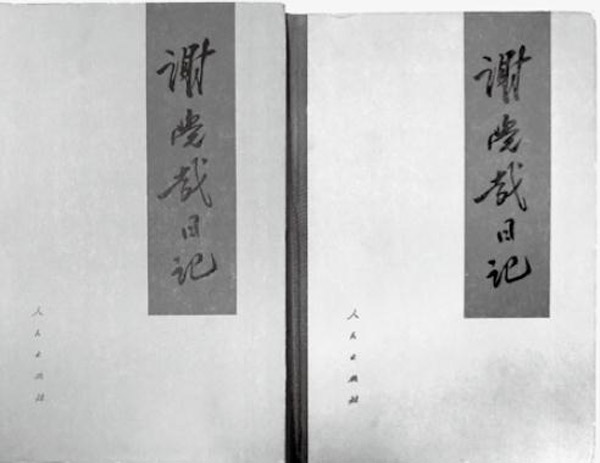 谢觉哉日记
人民出版社
谢觉哉日记
人民出版社